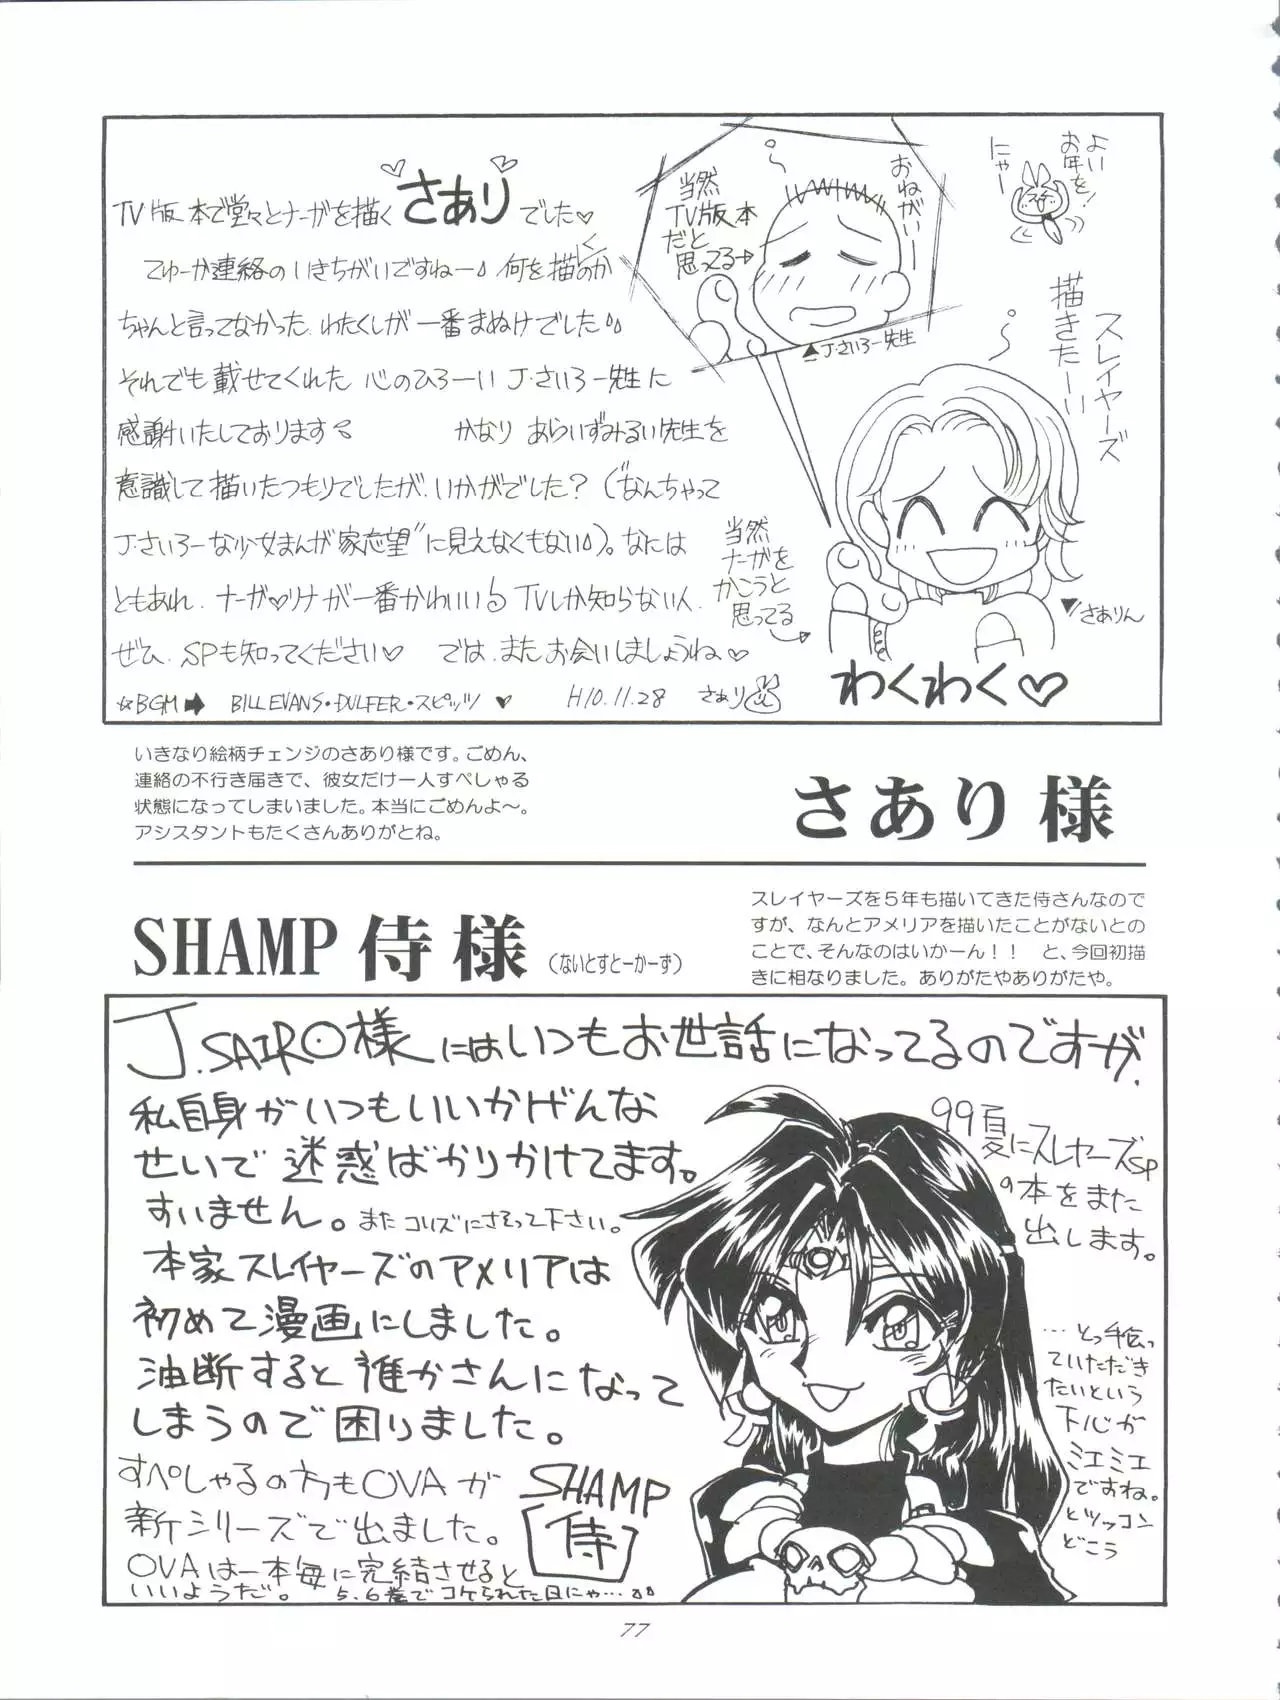 さあり
TV版本で堂々とナーガを描く さあり でした♡
てゆーか連絡のいきちがいですねー 何を描くのか
ちゃんと言ってなかった わたくしが一番まぬけでした
それでも載せてくれた 心のひろーい J・さいろー先生に
感謝いたしております かなり あらいずみるい先生を
意識して描いたつもりでしたが、いかがでした?("なんちゃって
J・さいろーな少女まんが家志望"に見えなくもない)。なには
ともあれ、ナーガ♡リナが一番かわいい TVしか知らない人、
ぜひ、SPも知ってください♡ では、またお会いしましょうね、♡
☆BGM➡ BILL EVANS・DULFER・スピッツ ♥ H10.11.28 さあり
当然
TV版本
だと
思ってる→
おねがいー
▲J・さいろー先生
よい
お年を!
にゃー
スレイヤーズ
描きたーい
当然
ナーガを
かこうと
思ってる
さありん
わくわく♡
いきなり絵柄チェンジのさあり様です。ごめん、
連絡の不行き届きで、彼女だけ一人すぺしゃる
状態になってしまいました。本当にごめんよ〜。
アシスタントもたくさんありがとね。
さあり 様
SHAMP 侍 様 (ないとすとーかーず)
スレイヤーズを5年も描いてきた侍さんなので
すが、なんとアメリアを描いたことがないとの
ことで、そんなのはいかーん!! と、今回初描
きに相なりました。ありがたやありがたや。
J.SAIRO様にはいつもお世話になってるのですが、
私自身がいつもいいかげんな
せいで迷惑ばかりかけてます。
すいません。またコリズにさそって下さい。
本家スレイヤーズのアメリアは
初めて漫画にしました。
油断すると誰かさんになって
しまうので困りました。
すぺしゃるの方もOVAが
新シリーズで出ました。
OVAは一本毎に完結させると
いいようだ。
SHAMP
侍
99夏にスレイヤーズSP
の本をまた
出します。
…とっ手伝っ
ていただき
たいという
下心が
ミエミエ
ですね。
とツッコン
どこう
77